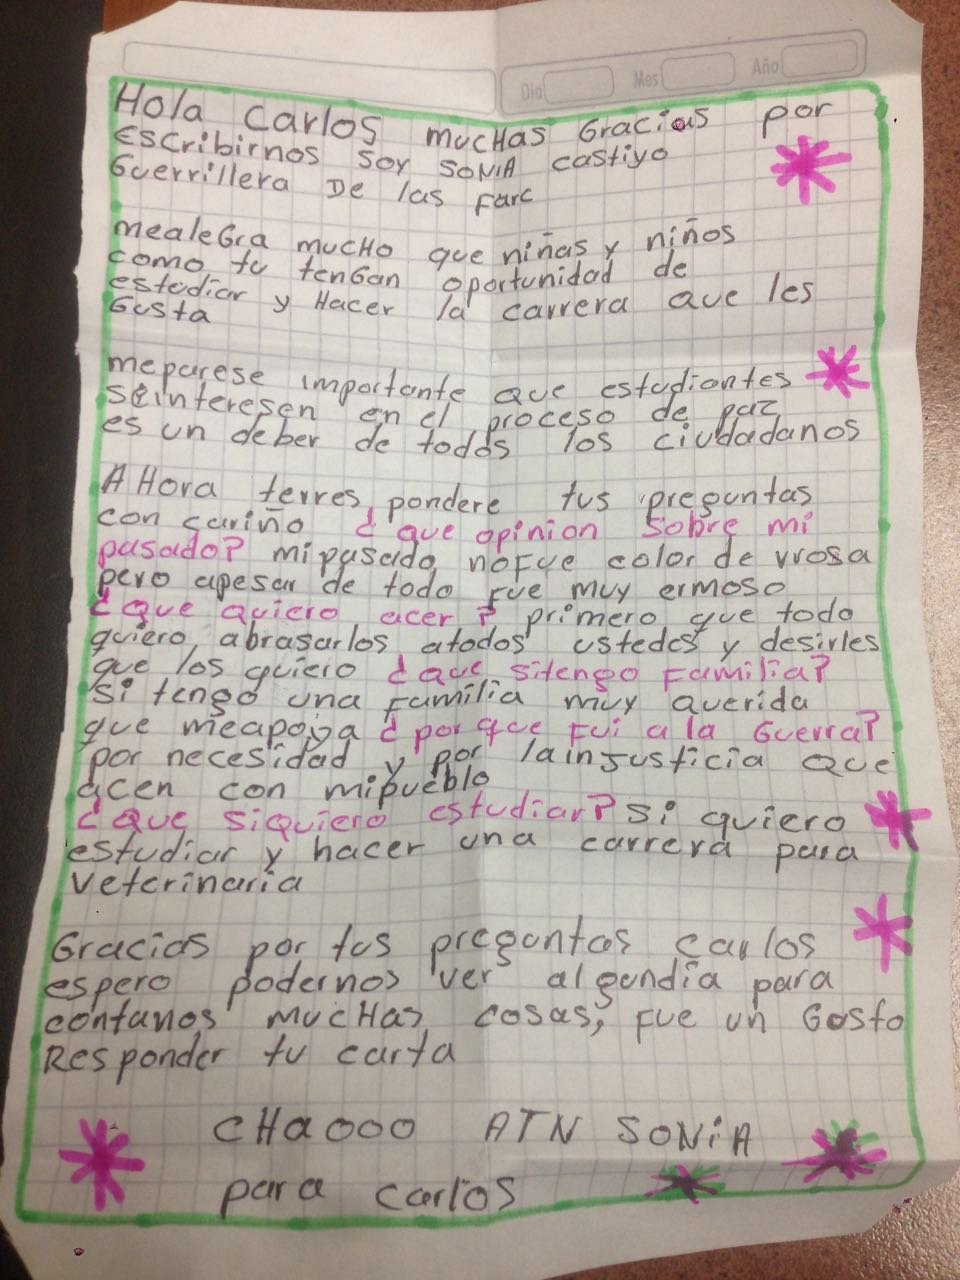 Dia Mes Año
Hola Carlos mucHas Gracias por
escribirnos soy SONIA castiyo
Guerrillera De las farc
mealeGra mucHo que niñas y niños
como tu tenGan oportunidad de
estudiar y Hacer la carrera que les
Gusta
meparese importante que estudiantes
seinteresen en el proceso de paz
es un deber de todos los ciudadanos
A Hora terres pondere tus preguntas
con cariño ¿que opinion sobre mi
pasado? mipasado nofue color de vrosa
pero apesar de todo fue muy ermoso
¿que quiero acer? primero que todo
quiero abrasarlos atodos ustedes y desirles
que los quiero ¿que sitengo familia?
si tengo una familia muy querida
que meapoya ¿por que fui a la Guerra?
por necesidad y por lainjusticia que
acen con mipueblo
¿que siquiero estudiar? Si quiero
estudiar y hacer una carrera para
veterinaria
Gracias por tus preguntas carlos
espero podernos ver algundia para
contanos mucHas cosas, fue un Gusto
Responder tu carta
cHaooo ATN SONiA
para carlos